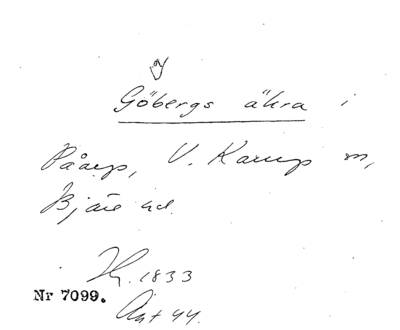 Göbergs åkra i
Påarp, V. Karup sn,
Bjäre hd.
Hy. 1833
Nr 7099.
Akt 44.